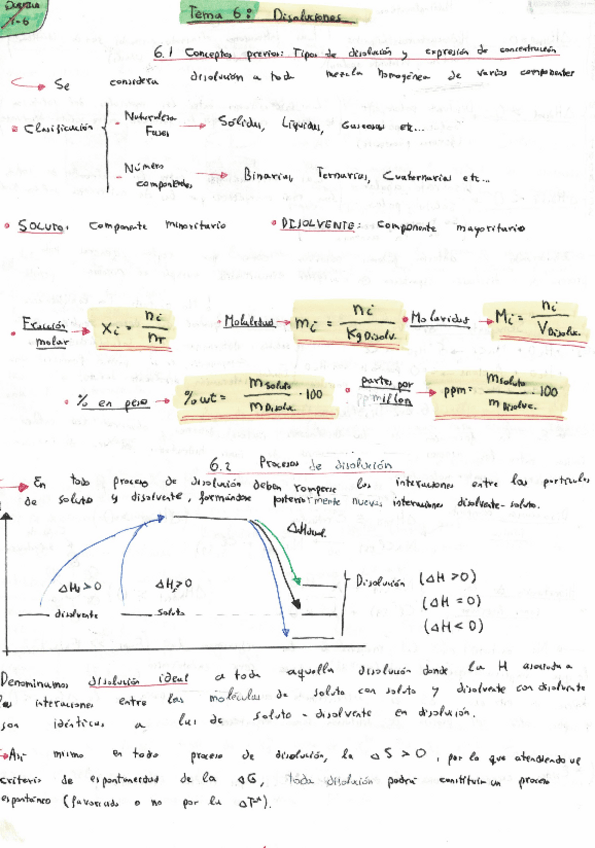 Tema 6: Disoluciones
6.1 Conceptos previos: Tipos de disolución y expresión de concentración
Se considera disolución a toda mezcla homogénea de varios componentes
• Clasificación
- Naturaleza Fases → Sólidas, Líquidas, Gaseosas etc...
- Número componentes → Binarias, Ternarias, Cuaternarias etc...
• SOLUTO: Componente minoritario • DISOLVENTE: Componente mayoritario
• Fracción molar → Xi = ni / nT • Molalidad → mi = ni / Kg Disolv. • Molaridad → Mi = ni / V Disoluc.
• % en peso → % wt = m soluto / m Disoluc. · 100 • partes por millon → ppm = m soluto / m Disolvc. · 100
6.2 Procesos de disolución
→ En todo proceso de disolución deben romperse las interaciones entre las partículas
de soluto y disolvente, formándose posteriormente nuevas interaciones disolvente-soluto.
ΔHdisol.
ΔH1>0 ΔH2>0
disolvente soluto
Disolución (ΔH >0)
(ΔH = 0)
(ΔH < 0)
Denominamos disolución ideal a toda aquella disolución donde la H asociada a
las interaciones entre las moléculas de soluto con soluto y disolvente con disolvente
son idénticas a las de soluto - disolvente en disolución.
→ Así mismo en todo proceso de disolución, la ΔS > 0, por lo que atendiendo al
criterio de espontaneidad de la ΔG, toda disolución podrá constituir un proceso
espontáneo (favorecido o no por la ΔTª).